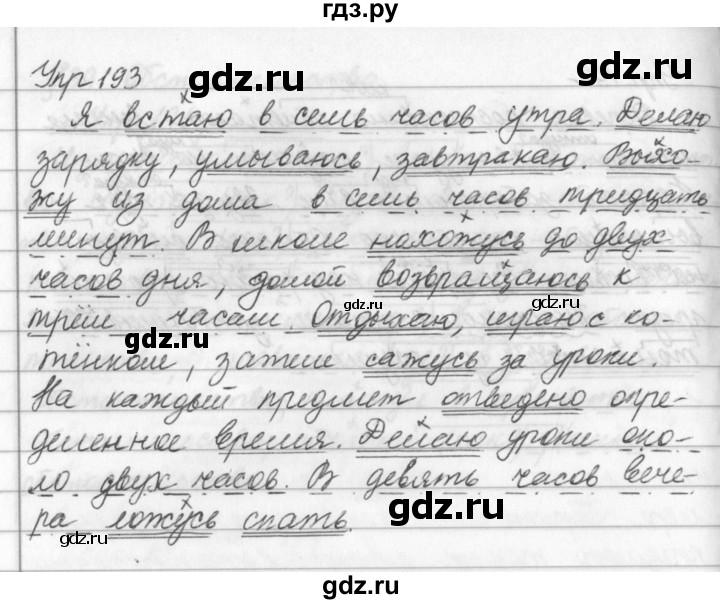 гдз.ру
Упр 193
gdz.ru gdz.ru
Я встаю в семь часов утра. Делаю
зарядку, умываюсь, завтракаю. Выхо-
жу из дома в семь часов тридцать
минут. В школе нахожусь до двух
часов дня, домой возвращаюсь к
gdz.ru gdz.ru
трём часам. Отдыхаю, играю с ко-
gdz.ru
тёнком, затем сажусь за уроки.
На каждый предмет отведено опре-
деленное время. Делаю уроки око-
ло двух часов. В девять часов вече-
ра ложусь спать.
gdz.ru gdz.ru
gdz.ru